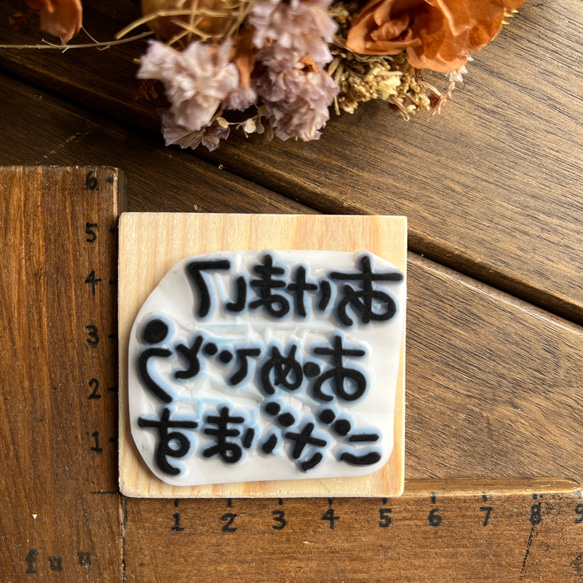 あけまして
おめでとう
ございます
6
5
4
3
2
1
1 2 3 4 5 6 7 8 9
fuu